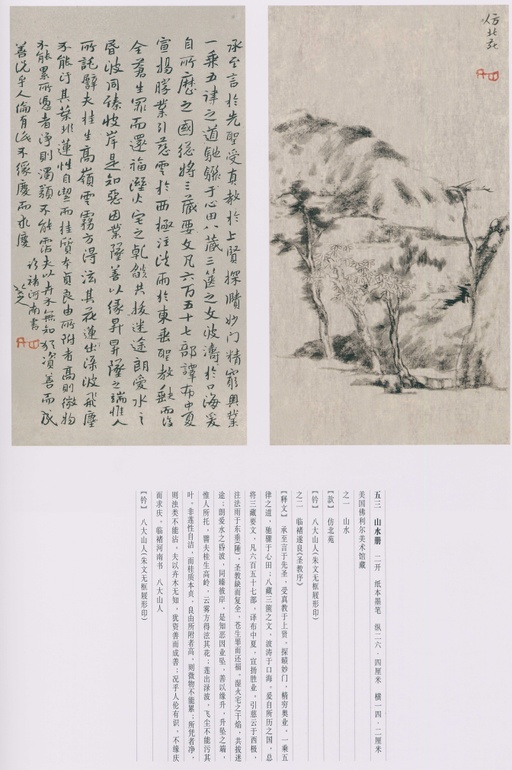 仿北苑
承至言於先聖受真教於上賢探賾妙門精窮奧業
一乘五律之道馳驟于心田八藏三篋之文波濤於口海爰
自所歷之國總將三藏要文凡六百五十七部譯布中夏
宣揚勝業引慈雲於西極注法雨於東垂聖教缺而復
全蒼生罪而還福溼火宅之乾燄共拔迷途朗愛水之
昏波同臻彼岸是知惡因業墜善以緣昇昇墜之端惟人
所託譬夫桂生高嶺雲霧方得泫其花蓮出渌波飛塵
不能汙其葉非蓮性自潔而桂質本貞良由所附者高則微物
不能累所憑者淨則濁類不能霑夫以卉木無知猶資善而成
善況乎人倫有識不緣慶而求慶
臨褚河南書
八大山人
五三 山水册 二开 纸本墨笔 纵二六·四厘米 横一四·二厘米
美国佛利尔美术馆藏
之一 山水
【款】仿北苑
【钤】八大山人(朱文无框屐形印)
之二 临褚遂良《圣教序》
【释文】承至言于先圣,受真教于上贤,探赜妙门,精穷奥业,一乘五
律之道,驰骤于心田;八藏三箧之文,波涛于口海。爰自所历之国,总
将三藏要文,凡六百五十七部,译布中夏,宣扬胜业,引慈云于西极,
注法雨于东垂[陲],圣教缺而复全,苍生罪而还福。湿火宅之干焰,共拔迷
途;朗爱水之昏波,同臻彼岸。是知恶因业坠,善以缘升,升坠之端,
惟人所托。譬夫桂生高岭,云雾方得泫其花;莲出渌波,飞尘不能污其
叶。非莲性自洁,而桂质本贞,良由所附者高,则微物不能累;所凭者净,
则浊类不能沾。夫以卉木无知,犹资善而成善;况乎人伦有识,不缘庆
而求庆。临褚河南书 八大山人
【钤】八大山人(朱文无框屐形印)